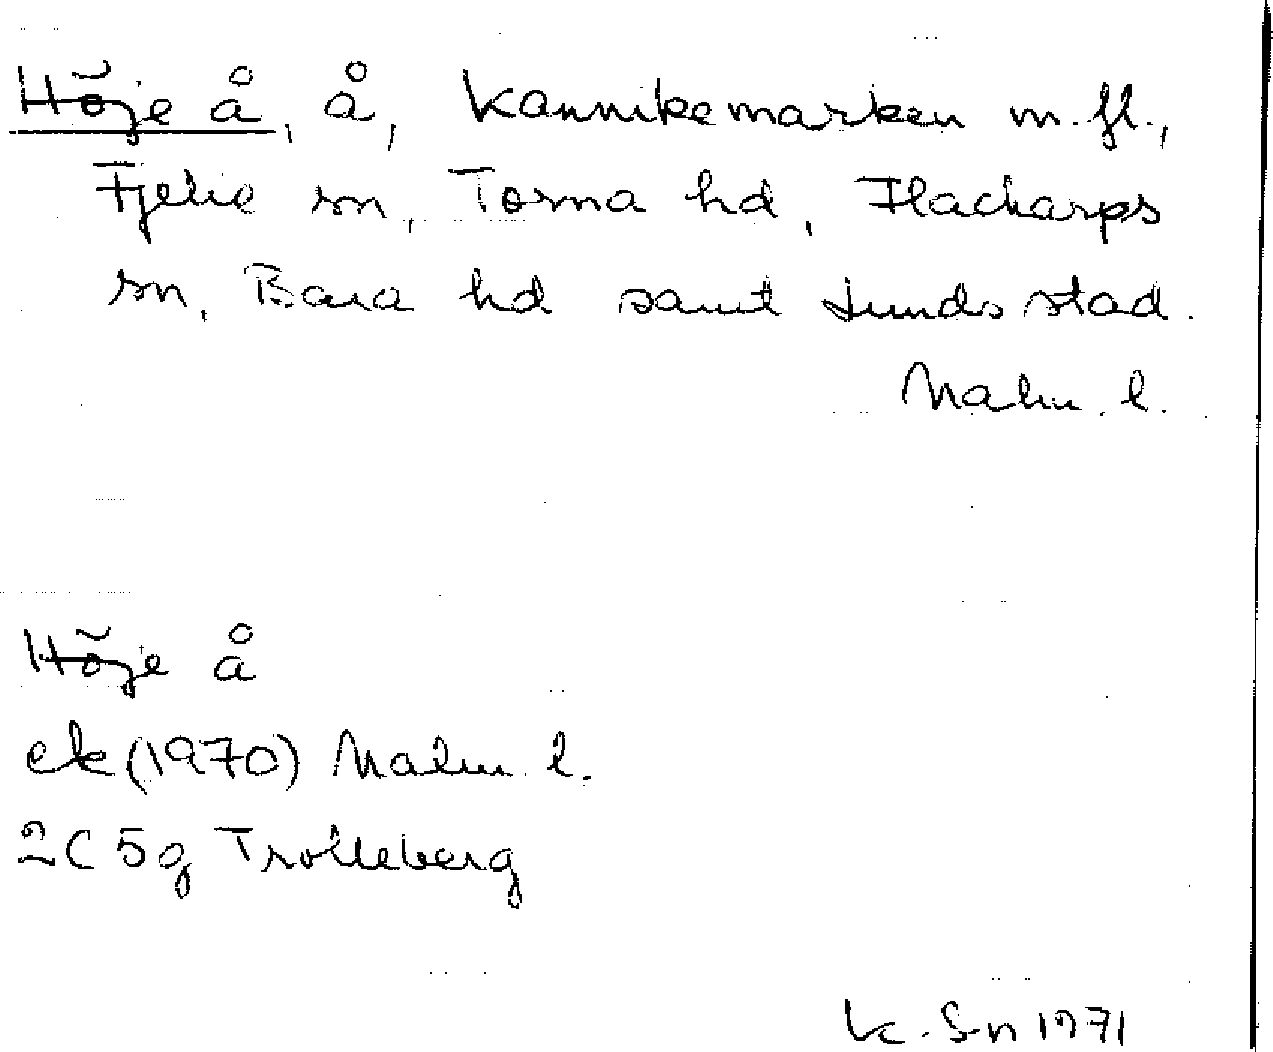 Höje å, å, Kannikemarken m.fl.,
Fjelie sn, Torna hd, Flackarps
sn, Bara hd samt Lunds stad.
Malm. l.
Höje å
ek (1970) Malm. l.
2C 5g Trolleberg
K. S-n 1971